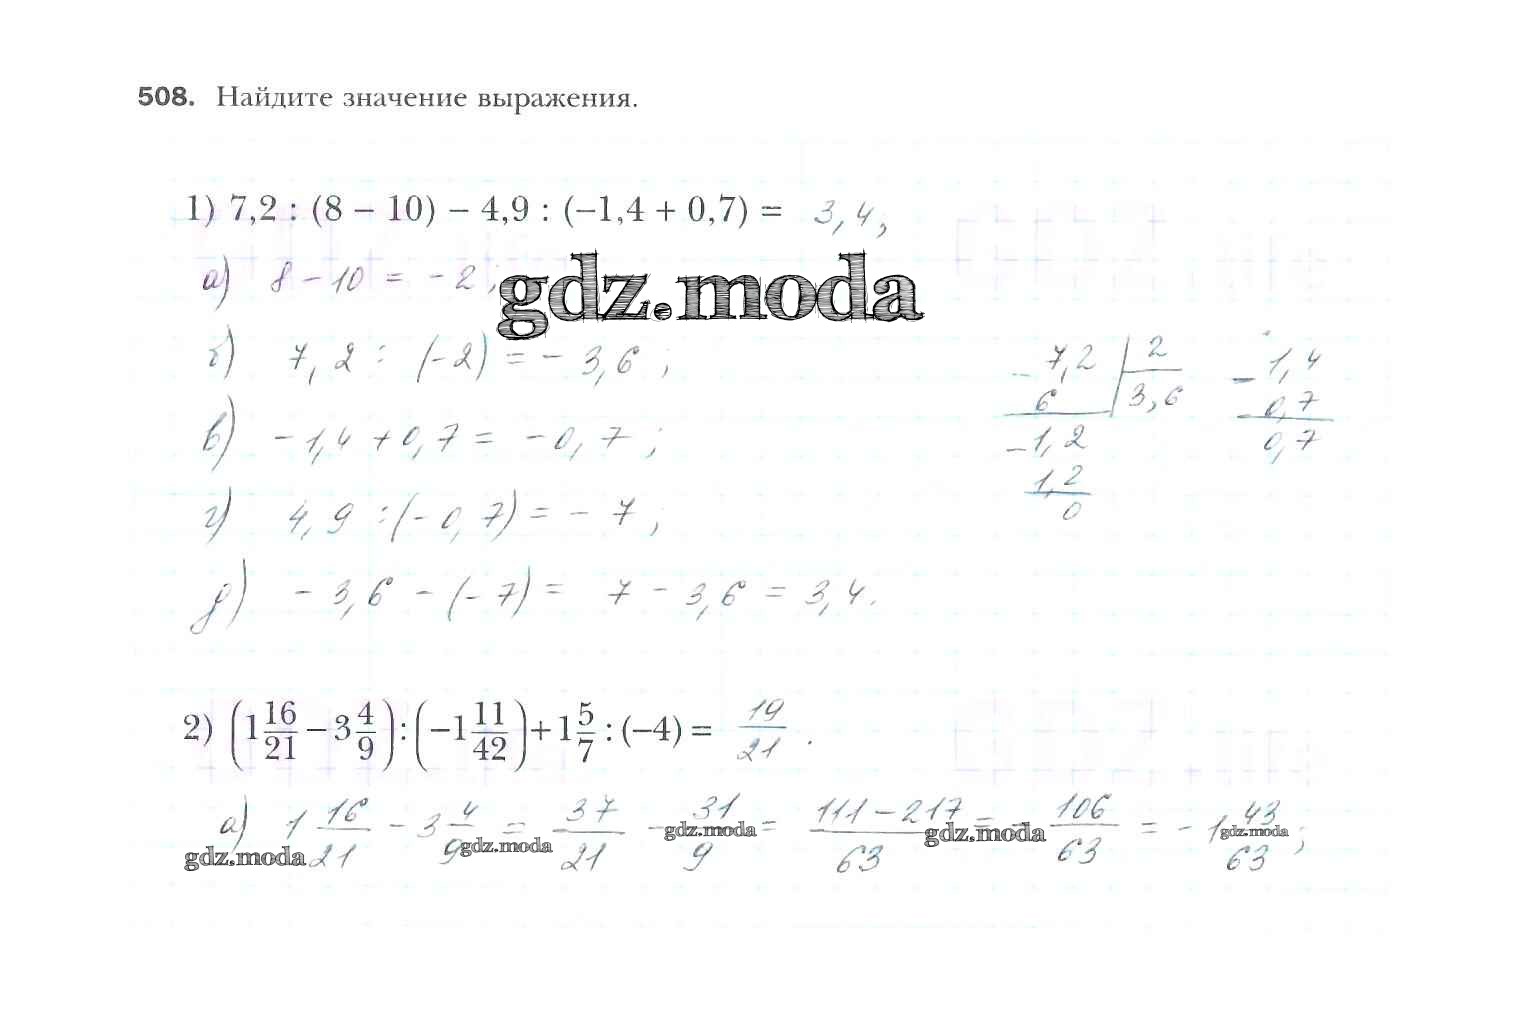 508. Найдите значение выражения.
1) 7,2 : (8 – 10) – 4,9 : (–1,4 + 0,7) = 3,4;
а) 8 – 10 = – 2;
gdz.moda
б) 7,2 : (–2) = – 3,6;
7,2 | 2
– 1,4
6 3,6
0,7
в) – 1,4 + 0,7 = – 0,7;
– 1,2
0,7
1,2
0
г) 4,9 : (– 0,7) = – 7;
д) – 3,6 – (– 7) = 7 – 3,6 = 3,4.
2) (1 16/21 – 3 4/9) : (–1 11/42) + 1 5/7 : (–4) = 19/21.
а) 1 16/21 – 3 4/9 = 37/21 – 31/9 = 111 – 217/63 = – 106/63 = – 1 43/63;
gdz.moda gdz.moda gdz.moda gdz.moda gdz.moda